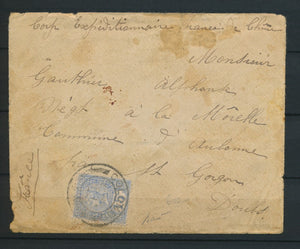 Corps Expéditionnaire français de Chine
Monsieur
Gauthier Alphonse
à la Mòrelle
Commune d'Aubonne
par St Gorgon
Doubs